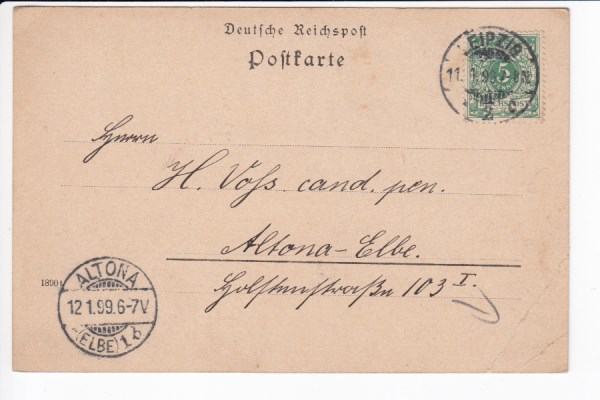 Deutsche Reichspost
Postkarte
LEIPZIG
11. 1. 99
2
c
5
Herrn
H. Voss. cand. pen.
Altona-Elbe.
Holstenstraße 103 I.
18904
ALTONA
12 1.99.6-7V
(ELBE) 1 b